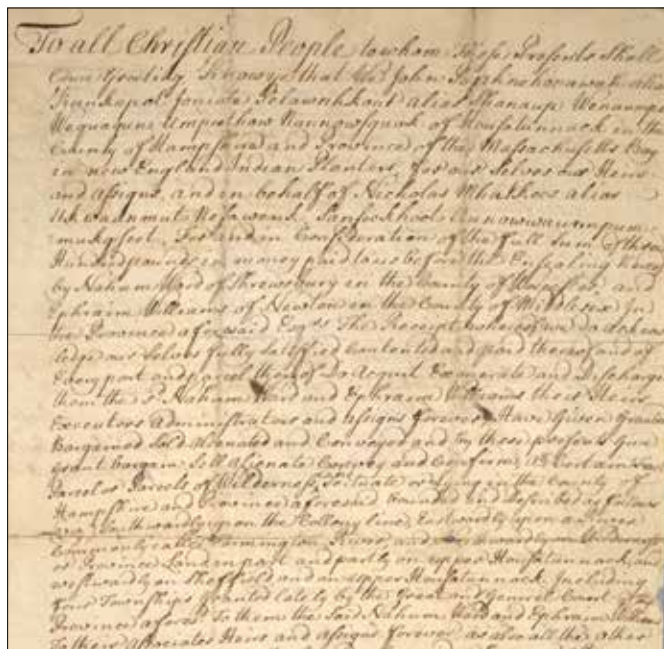 To all Christian People to whom These Presents Shall
Come Greeting Know ye that We John alias
alias
of Housatunnock in the
County of Hampshire and Province of the Massachusetts Bay
in new England Indian Planters, for our Selves our Heirs
and assigns, and in behalf of Nicholas alias
For and in Consideration of the full Sum of three
Hundred pounds in money paid to us before the Ensealing hereof
by Nahum Ward of Shrewsbury in the County of Worcester and
Ephraim Williams of Newton in the County of Middlesex In
the Province aforesaid Esqrs The Receipt whereof we Do acknow
ledge our Selves fully Satisfied Contented and paid thereof and of
Every part and parcel thereof Do acquit Exonerate and Discharge
them the sd Nahum Ward and Ephraim Williams their Heirs
Executors Administrators and assigns forever Have Given Granted
Bargained Sold alienated and Conveyed and by these presents Give
Grant Bargain Sell alienate Convey and Confirm, all Certain
Parcel or Parcels of Wilderness, Scituate or Lying in the County of
Hampshire and Province aforesaid bounded and Described as follows
upon the Colony line, Eastwardly upon a River
Commonly called Farmington River, and
or Province Land in part and partly on upper Housatunnock, and
westwardly on Sheffield and on upper Housatunnock Including
four Townships granted lately by the Great and General Court of the
Province aforesd To them the Said Nahum Ward and Ephraim Williams
To their associates Heirs and assigns forever, as also all the other